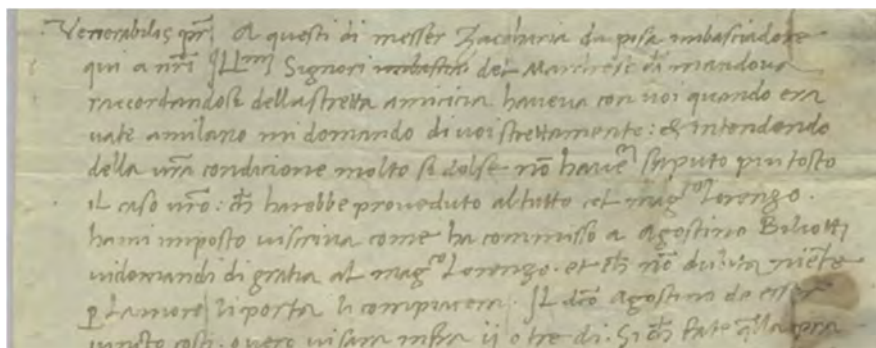 Venerabilis pr̄. A questi di messer Zaccharia da pisa imbasciadore
qui a nr̄i Ill^mi Signori del Marchese di mandova
raccordandosi della stretta amicicia haveva con voi quando era
vate a milano mi domando di voi strettamente: et intendendo
della vr̄a condicione molto si dolse nō haver saputo piu tosto
il caso vr̄o: ch̄ harebbe proveduto al tutto col mag^co Lorenzo.
hami imposto vi scriva come ha commisso a Agostino Biliotti
vi domandi di gratia al mag^co Lorenzo. et ch̄ nō dubita niēte
ꝑ lamore li porta li compiacera. Il dc̄o Agostino de esser
costi. overo vi sara infra ii o tre di. Si ch̄ fate